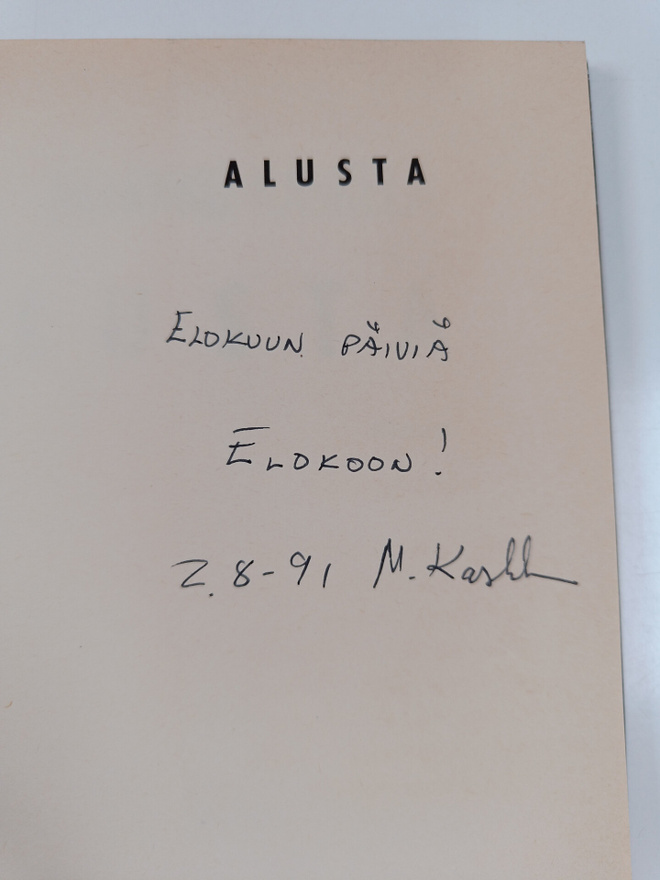 ALUSTA
ELOKUUN PÄIVIÄ
ELOKOON!
2.8-91 M.